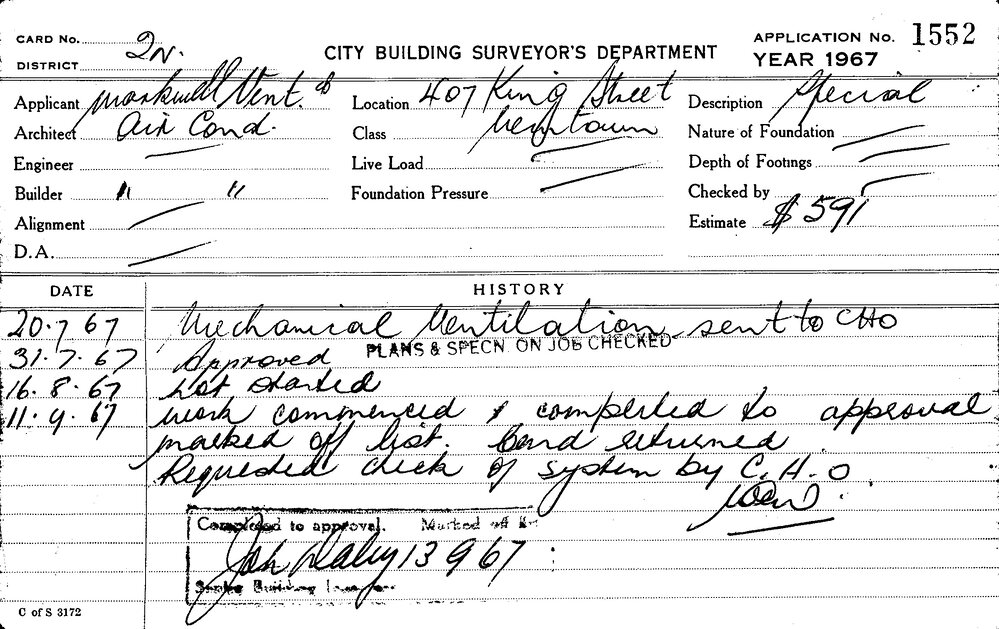 CARD No. 2N.
DISTRICT
CITY BUILDING SURVEYOR'S DEPARTMENT
APPLICATION No. 1552
YEAR 1967
Applicant Markwell Vent. &
Architect Air Cond.
Engineer
Builder " "
Alignment
D.A.
Location 407 King Street
Class Newtown
Live Load
Foundation Pressure
Description Special
Nature of Foundation
Depth of Footings
Checked by
Estimate $591
DATE HISTORY
20.7.67 Mechanical Ventilation sent to CHO
31.7.67 Approved PLANS & SPECN. ON JOB CHECKED
16.8.67 Not started
11.9.67 Work commenced & completed to approval
marked off list. Card returned
Requested check of system by C.H.O.
Completed to approval. Marked off list
John Daley 13 9 67
Senior Building
C of S 3172